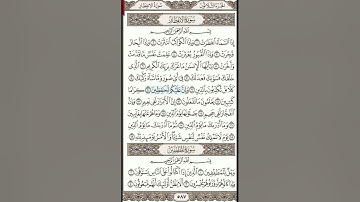 الجزء الثلاثون سورة الانفطار
سورة الانفطار
بسم الله الرحمن الرحيم
إِذَا السَّمَاءُ انفَطَرَتْ ١ وَإِذَا الْكَوَاكِبُ انتَثَرَتْ ٢ وَإِذَا الْبِحَارُ
فُجِّرَتْ ٣ وَإِذَا الْقُبُورُ بُعْثِرَتْ ٤ عَلِمَتْ نَفْسٌ مَّا قَدَّمَتْ
وَأَخَّرَتْ ٥ يَٰأَيُّهَا الْإِنسَٰنُ مَا غَرَّكَ بِرَبِّكَ الْكَرِيمِ ٦ الَّذِي
خَلَقَكَ فَسَوَّىٰكَ فَعَدَلَكَ ٧ فِي أَيِّ صُورَةٍ مَّا شَاءَ رَكَّبَكَ ٨
كَلَّا بَلْ تُكَذِّبُونَ بِالدِّينِ ٩ وَإِنَّ عَلَيْكُمْ لَحَٰفِظِينَ ١٠ كِرَامًا
كَٰتِبِينَ ١١ يَعْلَمُونَ مَا تَفْعَلُونَ ١٢ إِنَّ الْأَبْرَارَ لَفِي نَعِيمٍ ١٣
وَإِنَّ الْفُجَّارَ لَفِي جَحِيمٍ ١٤ يَصْلَوْنَهَا يَوْمَ الدِّينِ ١٥ وَمَا هُمْ عَنْهَا بِغَائِبِينَ ١٦
وَمَا أَدْرَىٰكَ مَا يَوْمُ الدِّينِ ١٧ ثُمَّ مَا أَدْرَىٰكَ مَا يَوْمُ الدِّينِ ١٨
يَوْمَ لَا تَمْلِكُ نَفْسٌ لِّنَفْسٍ شَيْئًا وَالْأَمْرُ يَوْمَئِذٍ لِّلَّهِ ١٩
سورة المطففين
بسم الله الرحمن الرحيم
وَيْلٌ لِّلْمُطَفِّفِينَ ١ الَّذِينَ إِذَا اكْتَالُوا عَلَى النَّاسِ يَسْتَوْفُونَ ٢
وَإِذَا كَالُوهُمْ أَو وَّزَنُوهُمْ يُخْسِرُونَ ٣ أَلَا يَظُنُّ أُولَٰئِكَ أَنَّهُم مَّبْعُوثُونَ ٤
٥٨٧